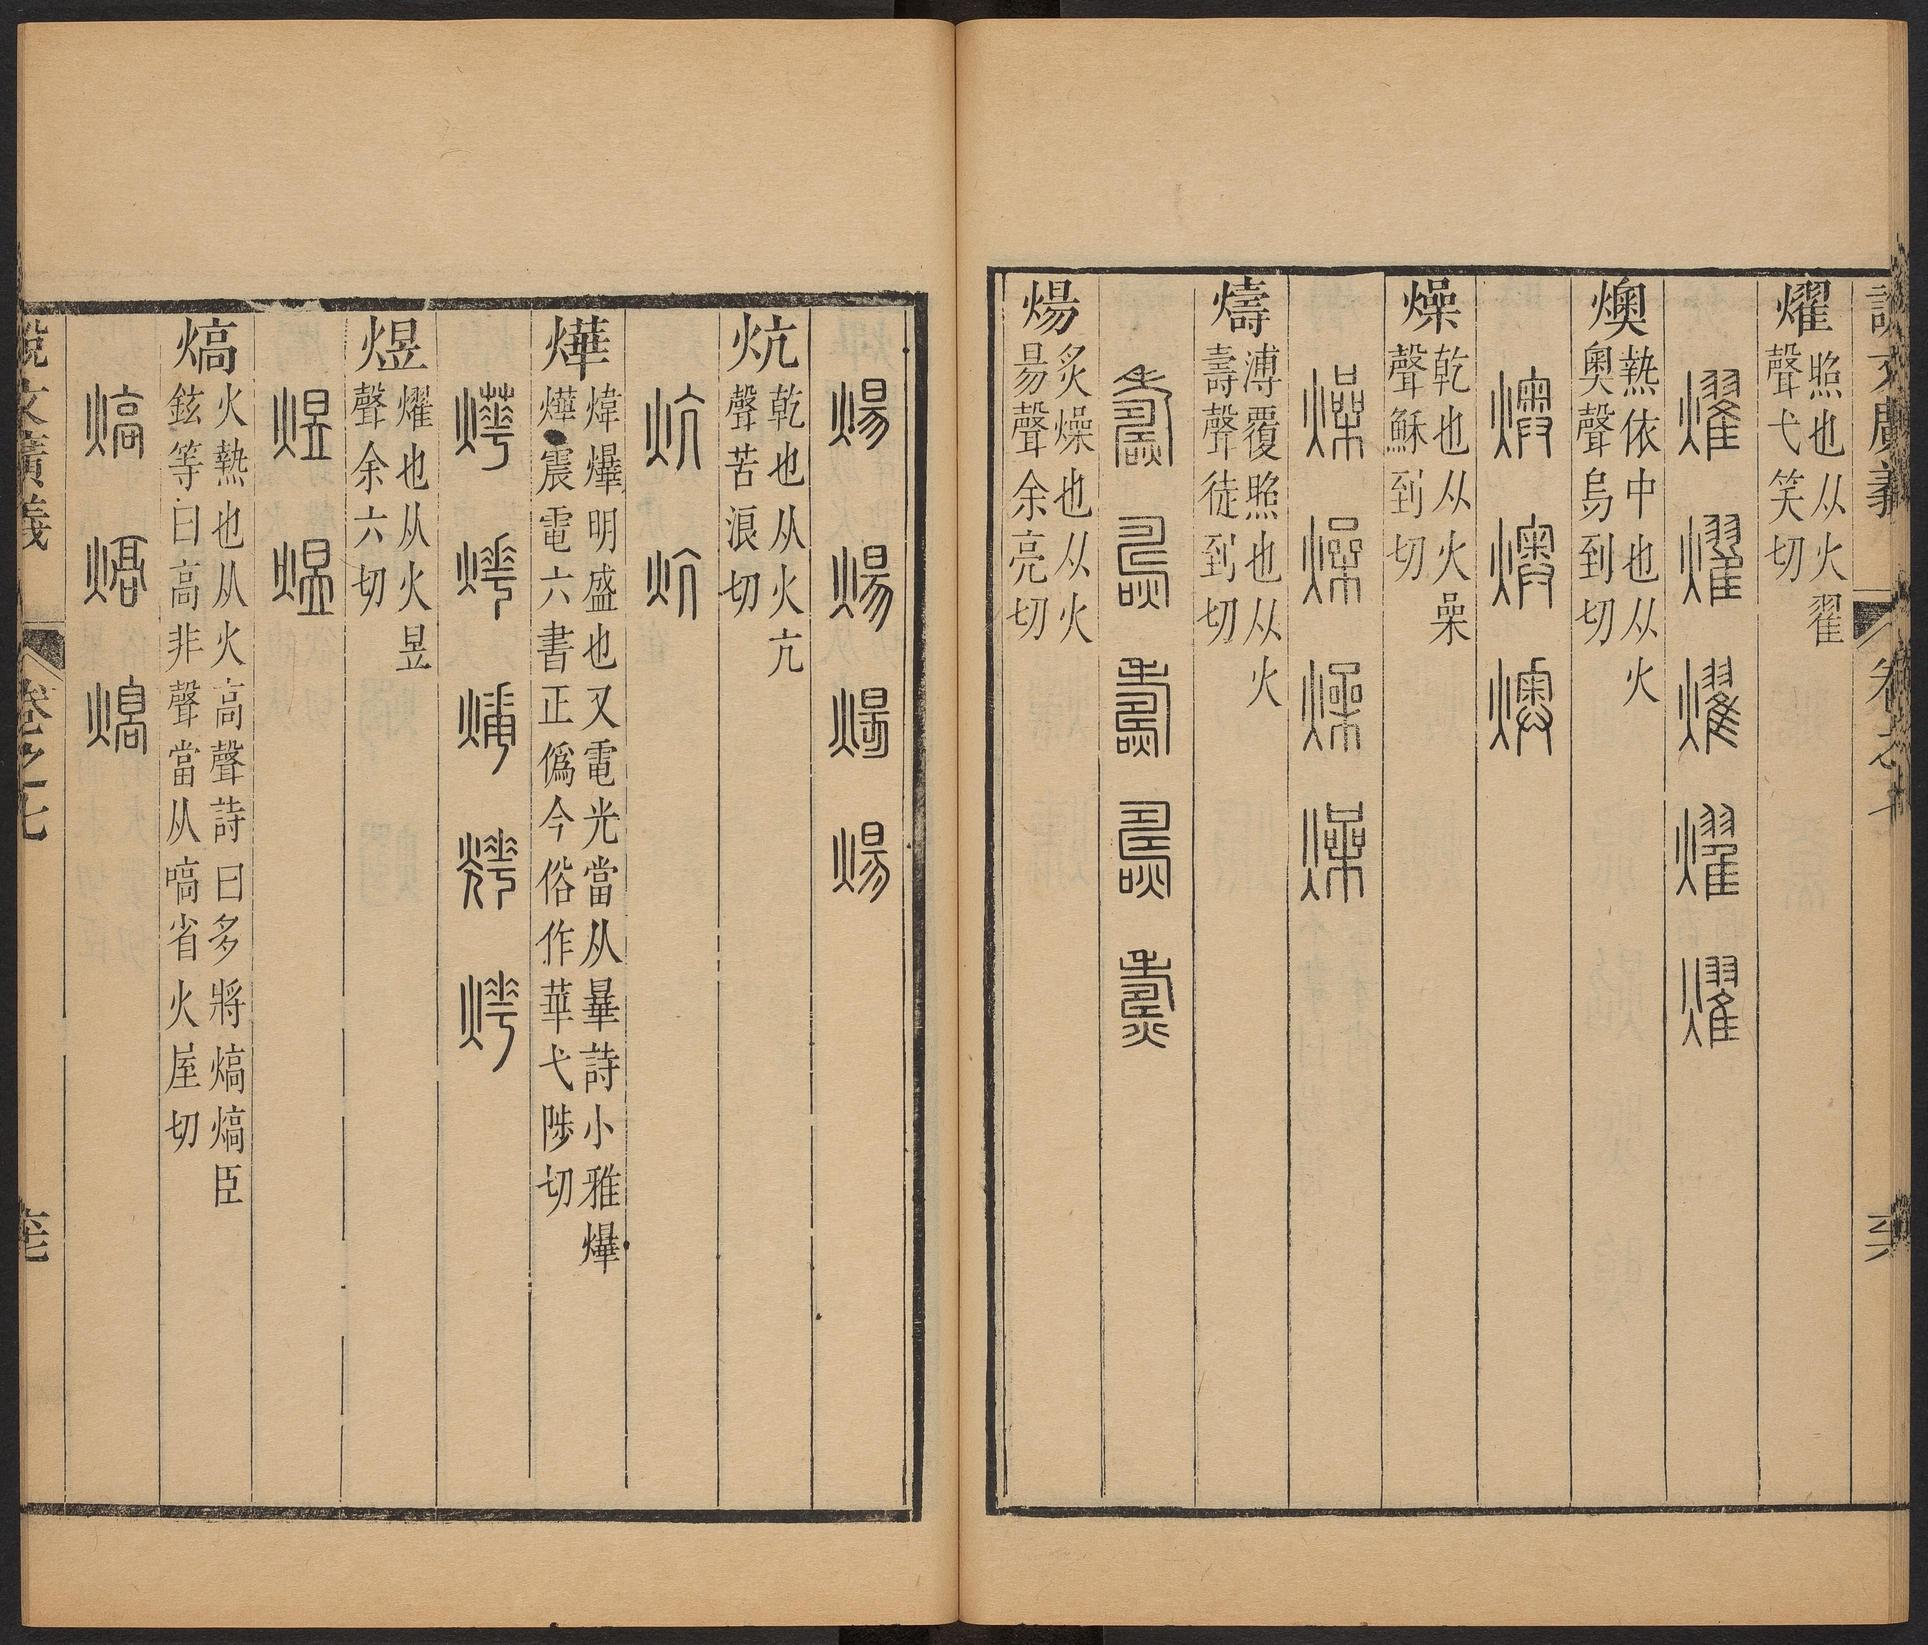 說文廣義 卷之七 六六
燿 照也从火翟
聲弋笑切
燿 燿 燿 燿 燿
燠 熱依中也从火
奧聲烏到切
燠 燠 燠
燥 乾也从火喿
聲穌到切
燥 燥 燥 燥
燾 溥覆照也从火
壽聲徒到切
燾 燾 燾 燾 燾
煬 炙燥也从火
昜聲余亮切
煬 煬 煬 煬
炕 乾也从火亢
聲苦浪切
炕 炕
燁 煒㷸明盛也又電光當从㬸詩小雅㷸
燁震電六書正僞今俗作華弋陟切
燁 燁 燁 燁 燁
煜 燿也从火昱
聲余六切
煜 煜
熇 火熱也从火高聲詩曰多將熇熇臣
鉉等曰高非聲當从嗃省火屋切
熇 熇 熇
說文廣義 卷之七 六七